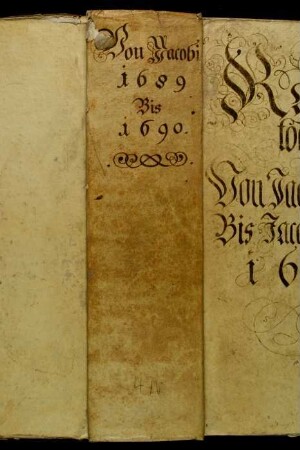 Von Jacobi
1689
Bis
1690.
HN
Von Jac
Bis Jaco
16